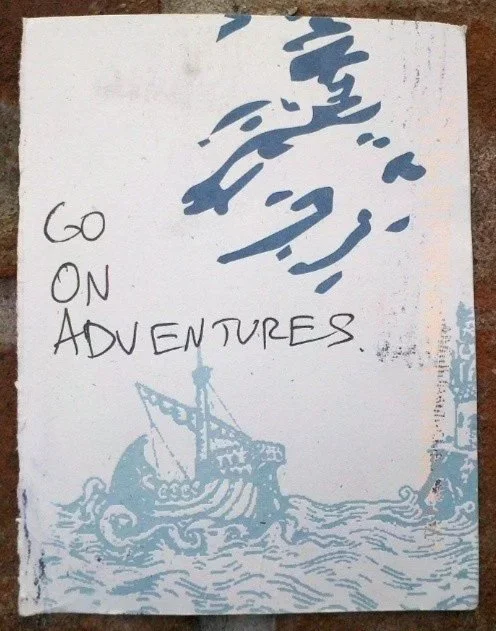 GO
ON
ADVENTURES.